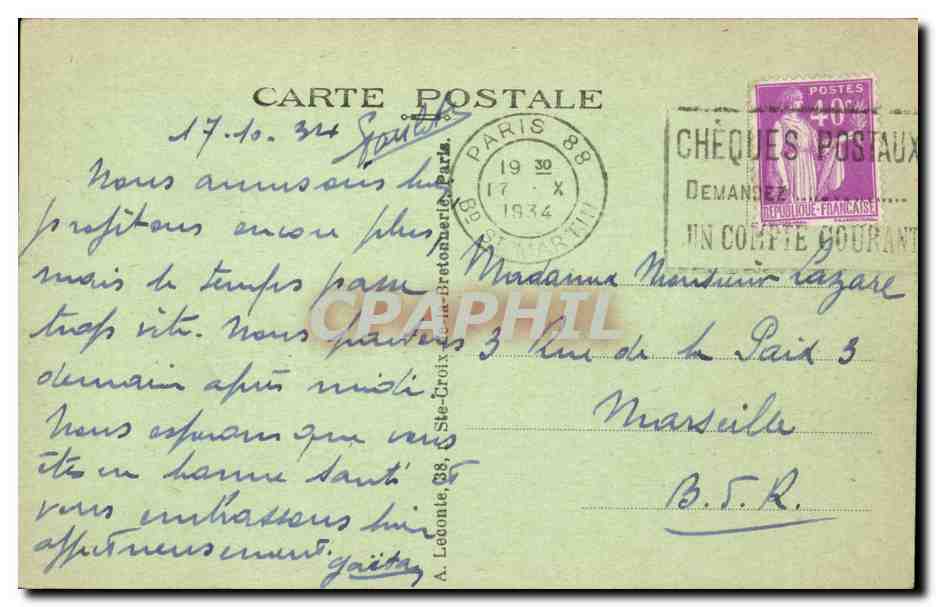 CARTE POSTALE
17.10.34
Nous amusons bien
profitons encore plus,
mais le temps passe
trop vite. Nous partons
demain après midi.
Nous espérons que vous
êtes en bonne santé et
vous embrassons bien
affectueusement.
Gaëtan
A. Leconte, 38, Ste-Croix-de-la-Bretonnerie, Paris.
PARIS 88
19 30
17 . X
1934
BD ST MARTIN
CHÈQUES POSTAUX
DEMANDEZ
UN COMPTE COURANT
POSTES
40c
RÉPUBLIQUE-FRANÇAISE
Madame Monsieur Lazare
3 Rue de la Paix 3
Marseille
B.d.R.
CPAPHIL